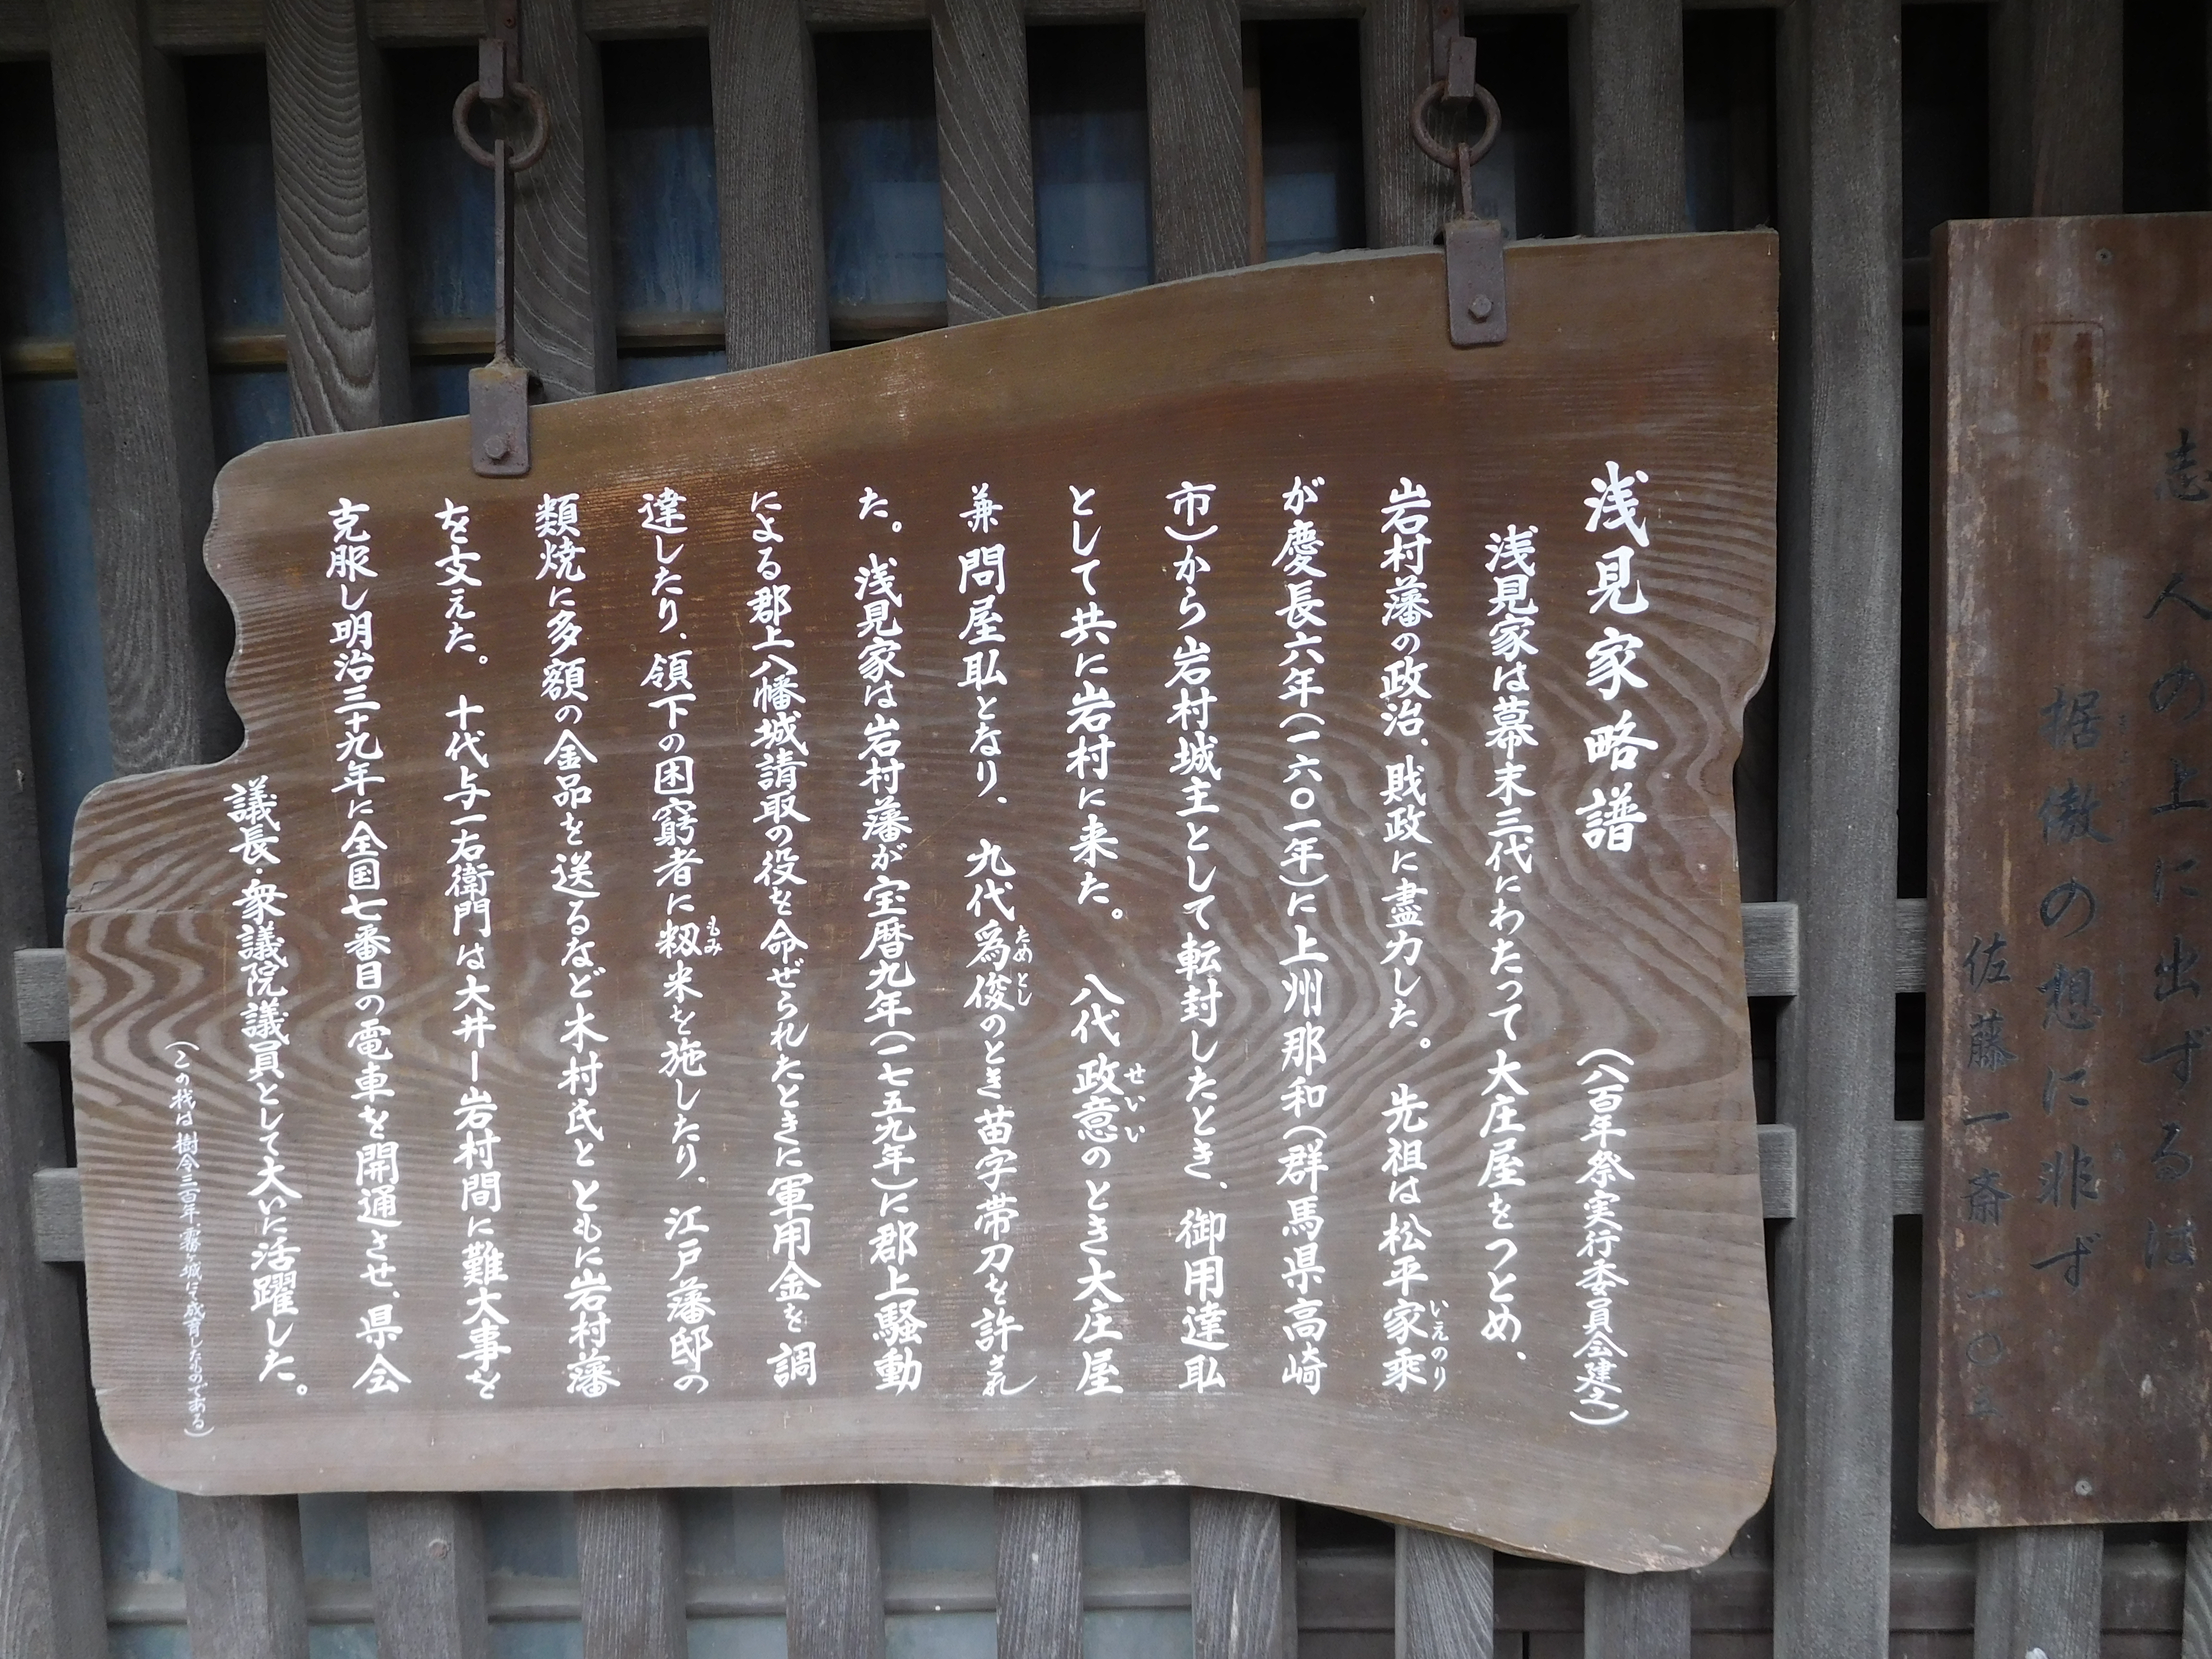 浅見家略譜 （八百年祭実行委員会建之）
浅見家は幕末三代にわたって大庄屋をつとめ、
岩村藩の政治、財政に盡力した。先祖は松平家乗
いえのり
が慶長六年（一六〇一年）に上州那和（群馬県高崎
市）から岩村城主として転封したとき、御用達耴
として共に岩村に来た。八代政意のとき大庄屋
せいい
兼問屋耴となり、九代爲俊のとき苗字帯刀を許され
ためとし
た。浅見家は岩村藩が宝暦九年（一七五九年）に郡上騒動
による郡上八幡城請取の役を命ぜられたときに軍用金を調
達したり、領下の困窮者に籾米を施したり、江戸藩邸の
もみ
類焼に多額の金品を送るなど木村氏とともに岩村藩
を支えた。十代与一右衛門は大井ー岩村間に難大事を
克服し明治三十九年に全国七番目の電車を開通させ、県会
議長・衆議院議員として大いに活躍した。
（この栈は樹令三百年、霧ヶ城にて成育したものである）
志人の上に出ずるは
倨傲の想に非ず
佐藤一斎